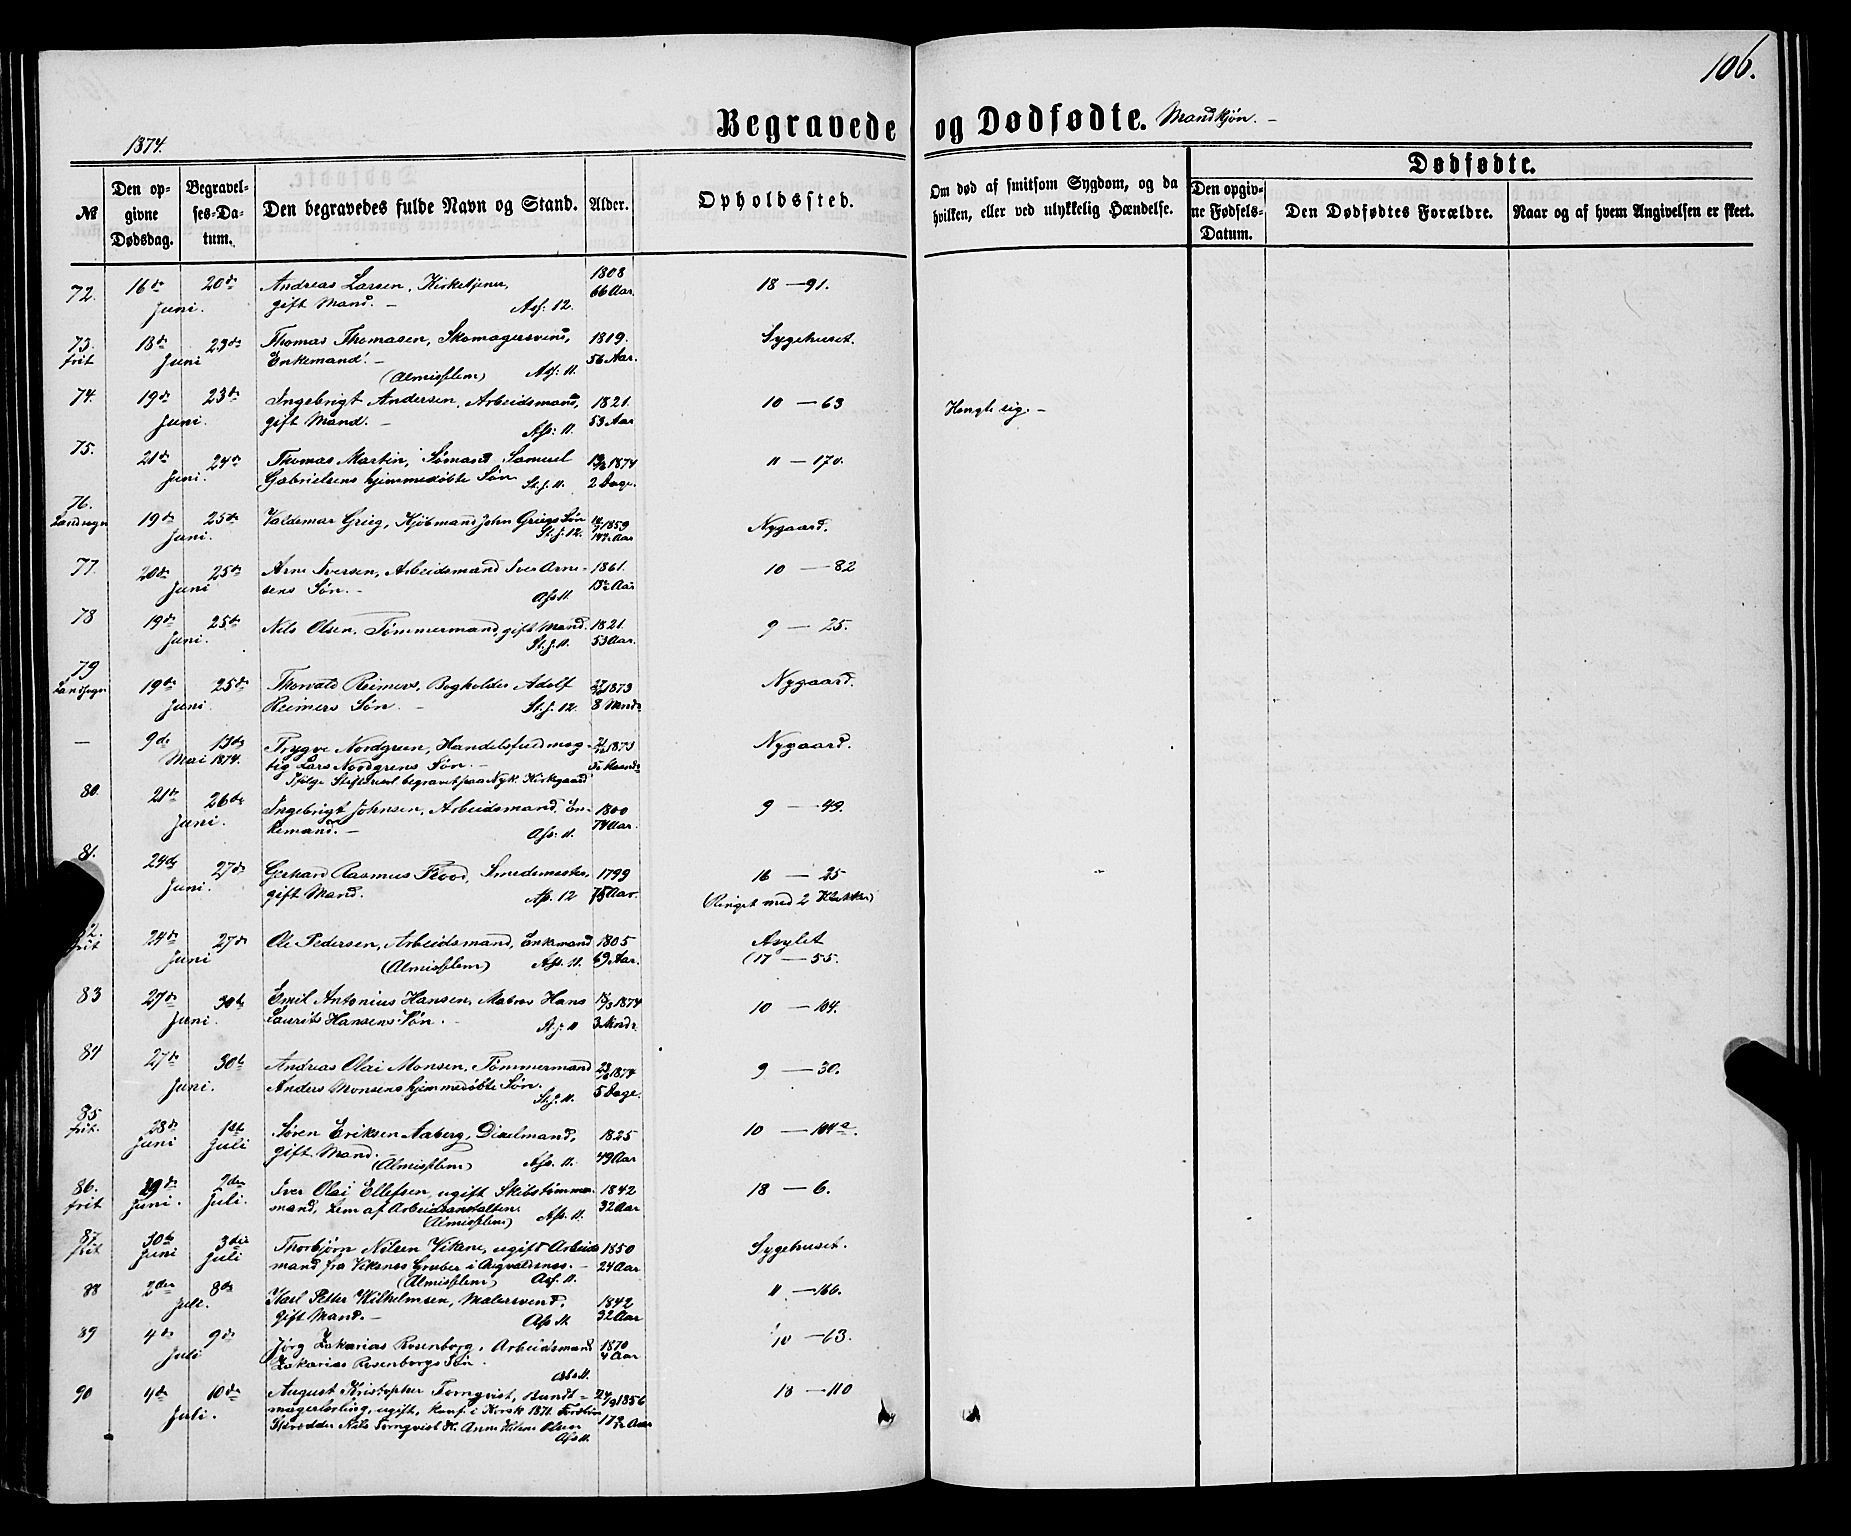 106.
Begravede og Dødfødte. Mandkjøn. -
1874.
№
Den opgivne Dødsdag.
Begravelses-Datum.
Den begravedes fulde Navn og Stand.
Alder.
Opholdssted.
Om død af smitsom Sygdom, og da hvilken, eller ved ulykkelig Hændelse.
Dødfødte.
Den opgivne Fødsels-Datum.
Den Dødfødtes Forældre.
Naar og af hvem Angivelsen er skeet.
72. 16de 20de Andreas Larsen, Kirketjener, 1808 18 — 91.
Juni. gift Mand. — Ass. 12. 66 Aar.
73. 18de 23de Thomas Thomasen, Skomagersvend, 1819. Sygehuset.
frit Juni Enkemand. — 56 Aar.
(Almisslem) Ass. 11.
74. 19de 23de Ingebrigt Andersen, Arbeidsmand, 1821. 10 — 63 Hengte sig. —
Juni. gift Mand. — 53 Aar
Ass. 11.
75. 21de 24de Thomas Martin, Sømand Samuel 1874 11 — 170.
Juni. Gabrielsens hjemmedøbte Søn St. J. 11. 2 Dage.
76.
Landsogn 19de 25de Valdemar Grieg, Kjøbmand John Griegs Søn 1859 Nygaard.
Juni. St. J. 12. Aar
77. 20de 25de Arne Iversen, Arbeidsmand Iver Arne- 1861. 10 — 82
Juni sens Søn. — Ass 11. Aar
78 19de 25de Nils Olsen, Tømmermand, gift Mand. 1821. 9 — 25.
Juni. St. J. 11. 53 Aar.
79
Landsogn 19de 25de Thorvald Reimers, Bogholder Adolf 1873 Nygaard.
Juni. Reimers Søn. — St. J. 12. 8 Mndr
— 9de 13de Trygve Nordgreen, Handelsfuldmæg- 1873 Nygaard.
Mai 1874. tig Lars Nordgrens Søn. —
Ifølge begravet paa Nyk. Kirkegaard
80. 21de 26de Ingebrigt Johnsen, Arbeidsmand, En- 1800 9 — 49.
Juni. kemand. — Ass. 11. 74 Aar.
81. 24de 27de Gerhard Rasmus Flood, Smedemester, 1799 16 — 25
Juni. gift Mand. Ass. 12 75 Aar. (Ringet med 2 Klokker)
82.
frit 24de 27de Ole Pedersen, Arbeidsmand, Enkemand 1805 Asylet
Juni (Almisslem) Ass. 11. 69 Aar. (17 — 55.
83 27de 30te Emil Antonius Hansen, Matros Hans 1874 10 — 104.
Juni. Laurits Hansens Søn. — Ass. 11 3 Mndr.
84 27de 30te Andreas Olai Monsen, Tømmermand 1874 9 — 30.
Juni. Anders Monsens hjemmedøbte Søn. St. J. 11. 5 Dage.
85
frit. 28de 1ste Søren Eriksen Aaberg, Dixelmand, 1825 10 — 104a.
Juni Juli gift Mand. (Almisslem) Ass. 11. 49 Aar
86. 29de 2den Iver Olai Ellefsen, ugift Skibstømmer- 1842 18 — 6.
frit Juni. Juli. mand, Lem af Arbeidsanstalten. 32 Aar
(Almisslem) Ass. 11.
87. 30te 3die Thorbjørn Nilsen Vikene, ugift Arbeids- 1850 Sygehuset.
frit Juni Juli mand fra Viksnes Gruber i Augvaldsnes. — 24 Aar
(Almisslem) Ass. 11.
88 2den 8de Karl Petter Wilhelmsen, Malersvend, 1842 11 — 166.
Juli. gift Mand. — Ass 11. 32 Aar
89 4de 9de Jørg Zakarias Rosenborg, Arbeidsmand 1870 10 — 63.
Juli Zakarias Rosenborgs Søn. 4 Aar
Ass 11.
90 4de 10de August Kristopher Tornqvist, Bundt- 24/9 1856 18 — 110
Juli. magerlærling, ugift, konf. i Korsk 1871. Forældre Aar
Skrædder Nils Tornqvist H. Anne Helene Olsen
Ass 11.